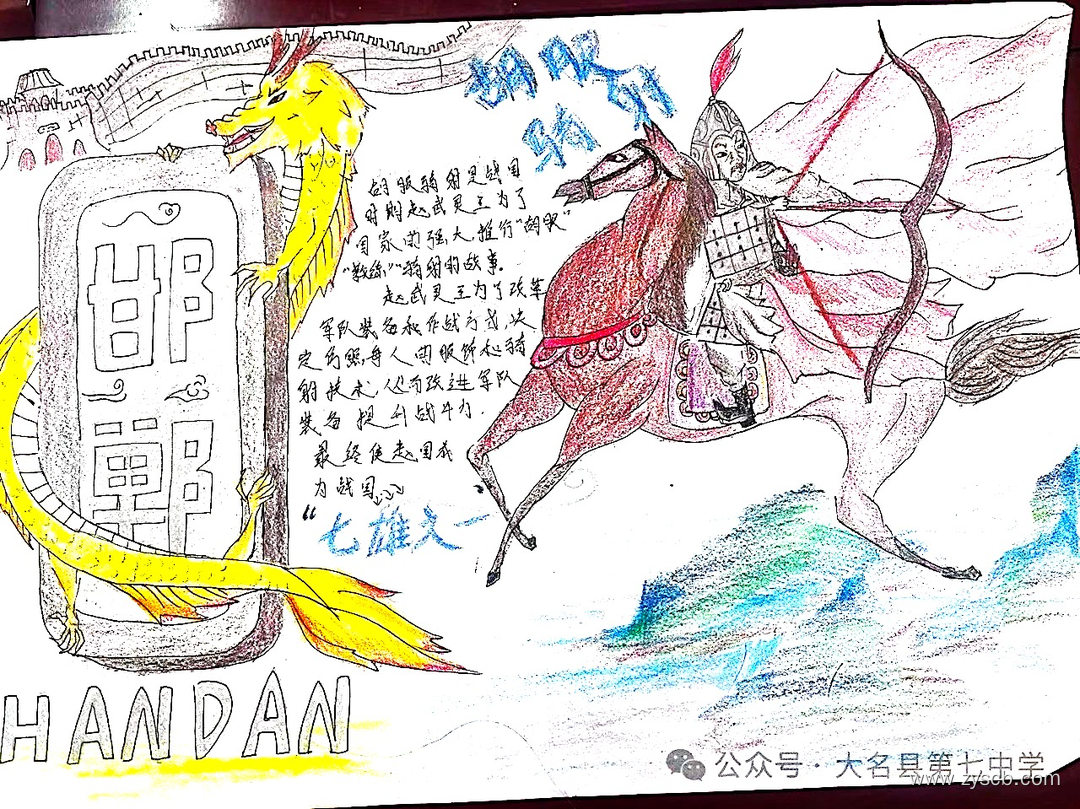 胡服
骑射
胡服骑射是战国
时期赵武灵王为了
国家的强大,推行“胡服”
“教练”骑射的故事。
赵武灵王为了改革
军队装备和作战方式,决
定
人的服饰和骑
射技术,
改进军队
装备提升战斗力.
最终使赵国成
为战国
“七雄之一
邯郸
HANDAN
公众号 · 大名县第七中学
www.zyscb.com